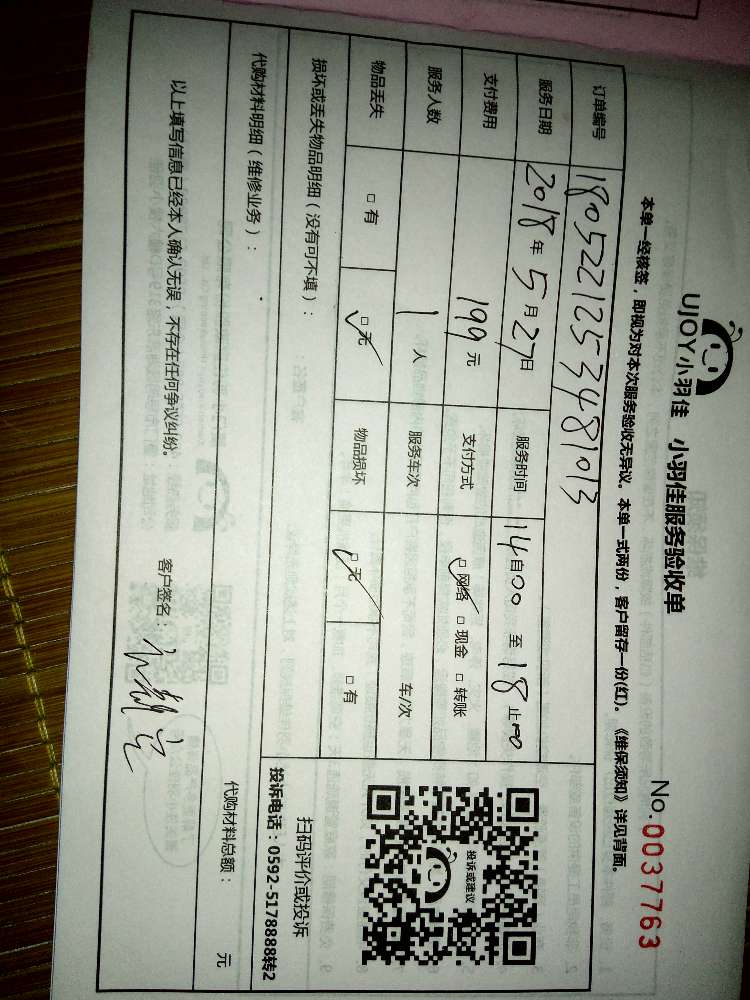 UJOY小羽佳 小羽佳服务验收单
No.0037763
本单一经核签，即视为对本次服务验收无异议。本单一式两份，客户留存一份(红)。《维保须知》详见背面。
订单编号 1805221253481013
服务日期 2018年5月27日 服务时间 14自00 至 18止00
支付费用 199元 支付方式 □网络 □现金 □转账
服务人数 1人 服务车次 车/次
物品丢失 □有 □无 物品损坏 □无 □有
损坏或丢失物品明细（没有可不填）：
投诉或建议
扫码评价或投诉
投诉电话：0592-5178888转2
代购材料明细（维修业务）：
代购材料总额： 元
以上填写信息已经本人确认无误，不存在任何争议纠纷。 客户签名：